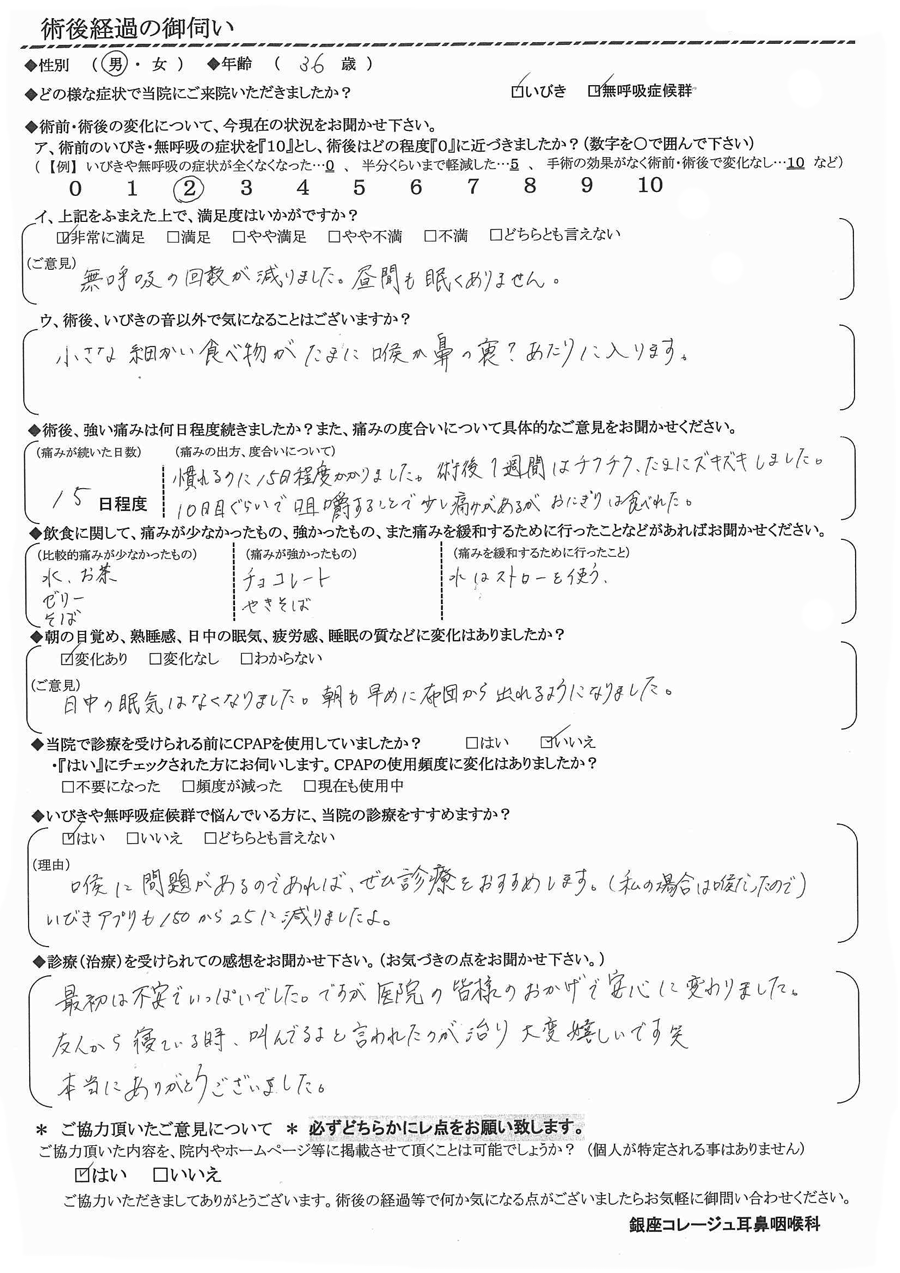 術後経過の御伺い
◆性別 （ 男 ・ 女 ） ◆年齢 （ 36 歳 ）
◆どの様な症状で当院にご来院いただきましたか？ ☑いびき ☑無呼吸症候群
◆術前・術後の変化について、今現在の状況をお聞かせ下さい。
ア、術前のいびき・無呼吸の症状を『10』とし、術後はどの程度『0』に近づきましたか？（数字を○で囲んで下さい）
（【例】 いびきや無呼吸の症状が全くなくなった…0 、 半分くらいまで軽減した…5 、 手術の効果がなく術前・術後で変化なし…10 など）
0 1 2 3 4 5 6 7 8 9 10
イ、上記をふまえた上で、満足度はいかがですか？
☑非常に満足 □満足 □やや満足 □やや不満 □不満 □どちらとも言えない
（ご意見）
無呼吸の回数が減りました。昼間も眠くありません。
ウ、術後、いびきの音以外で気になることはございますか？
小さな細かい食べ物がたまに喉か鼻の裏？あたりに入ります。
◆術後、強い痛みは何日程度続きましたか？また、痛みの度合いについて具体的なご意見をお聞かせください。
（痛みが続いた日数） （痛みの出方、度合いについて）
慣れるのに15日程度かかりました。術後1週間はチクチク、たまにズキズキしました。
15 日程度 10日目ぐらいで咀嚼することで少し痛みがあるがおにぎりは食べれた。
◆飲食に関して、痛みが少なかったもの、強かったもの、また痛みを緩和するために行ったことなどがあればお聞かせください。
（比較的痛みが少なかったもの） （痛みが強かったもの） （痛みを緩和するために行ったこと）
水、お茶 チョコレート 水はストローを使う、
ゼリー やきそば
そば
◆朝の目覚め、熟睡感、日中の眠気、疲労感、睡眠の質などに変化はありましたか？
☑変化あり □変化なし □わからない
（ご意見）
日中の眠気はなくなりました。朝も早めに布団から出れるようになりました。
◆当院で診療を受けられる前にCPAPを使用していましたか？ □はい ☑いいえ
・『はい』にチェックされた方にお伺いします。CPAPの使用頻度に変化はありましたか？
□不要になった □頻度が減った □現在も使用中
◆いびきや無呼吸症候群で悩んでいる方に、当院の診療をすすめますか？
☑はい □いいえ □どちらとも言えない
（理由）
喉に問題があるのであれば、ぜひ診療をおすすめします。（私の場合は喉だったので）
いびきアプリも150から25に減りましたよ。
◆診療（治療）を受けられての感想をお聞かせ下さい。（お気づきの点をお聞かせ下さい。）
最初は不安でいっぱいでした。ですが医院の皆様のおかげで安心に変わりました。
友人から寝ている時、叫んでるよと言われたのが治り大変嬉しいです笑
本当にありがとうございました。
＊ ご協力頂いたご意見について ＊ 必ずどちらかにレ点をお願い致します。
ご協力頂いた内容を、院内やホームページ等に掲載させて頂くことは可能でしょうか？ （個人が特定される事はありません）
☑はい □いいえ
ご協力いただきましてありがとうございます。術後の経過等で何か気になる点がございましたらお気軽に御問い合わせください。
銀座コレージュ耳鼻咽喉科